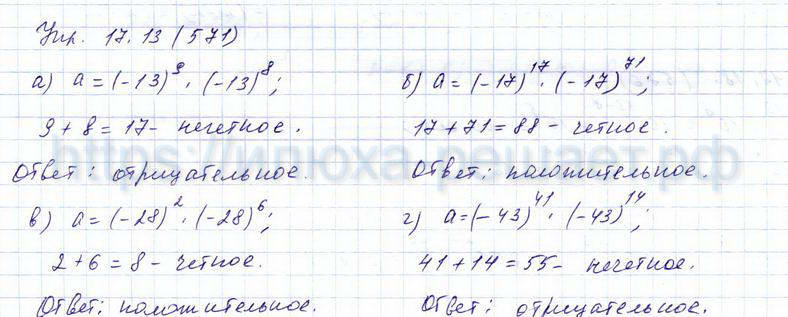 Упр. 17.13 (571)
а) a = (-13)⁹ · (-13)⁸;
9 + 8 = 17 - нечетное.
Ответ: отрицательное.
б) a = (-17)¹⁷ · (-17)⁷¹;
17 + 71 = 88 - четное.
Ответ: положительное.
в) a = (-28)² · (-28)⁶;
2 + 6 = 8 - четное.
Ответ: положительное.
г) a = (-43)⁴¹ · (-43)¹⁴;
41 + 14 = 55 - нечетное.
Ответ: отрицательное.
https://илюха-решает.рф